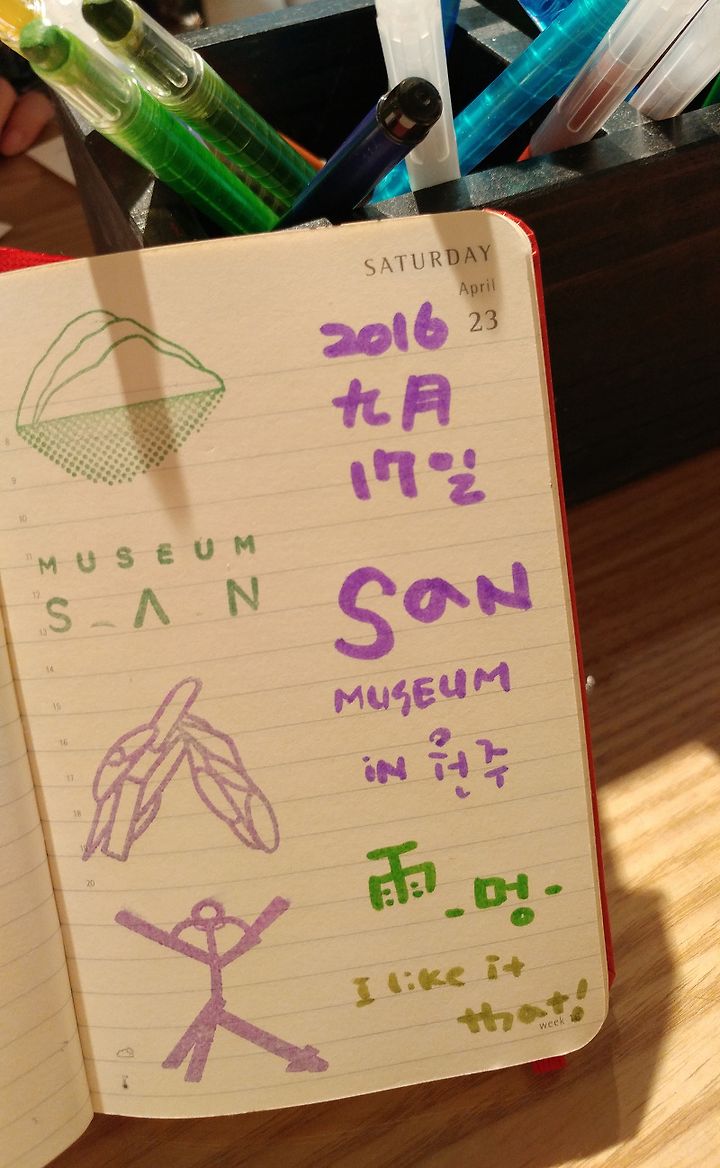 SATURDAY
April
23
2016
九月
17일
MUSEUM
SAN
SAN
MUSEUM
in 원주
雨 -멍-
I like it
that!
week
8
9
10
11
12
13
14
15
16
17
18
19
20